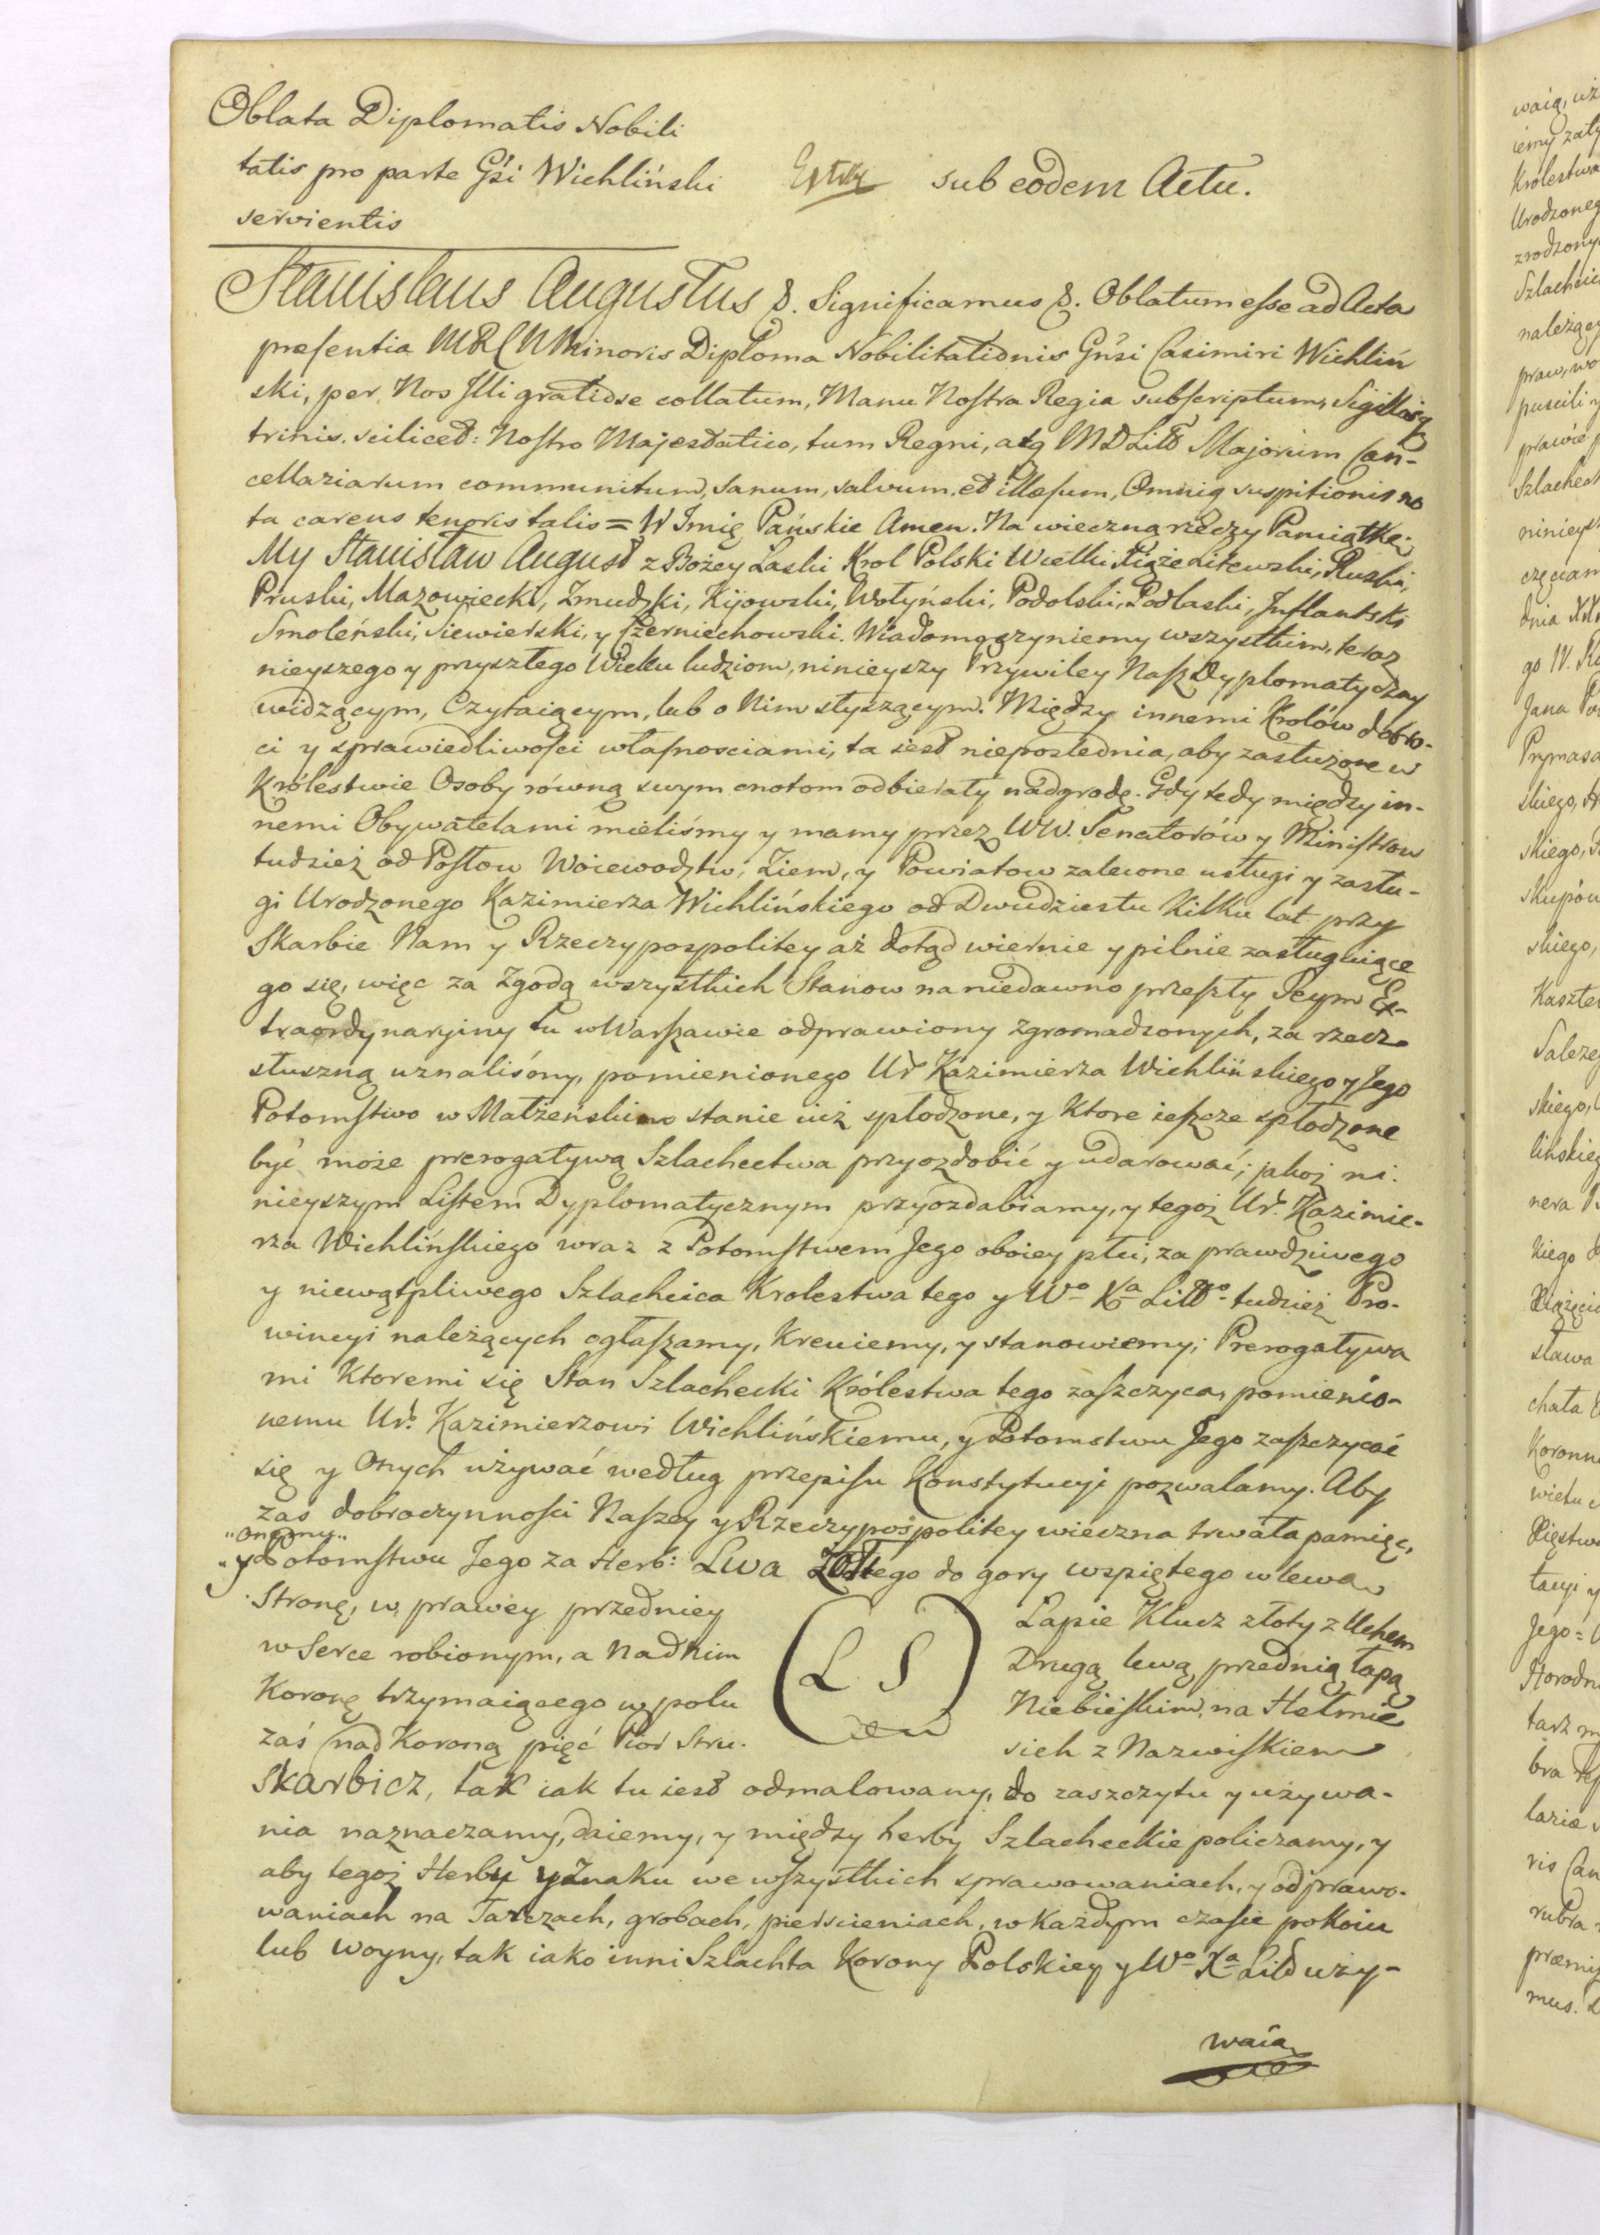 Oblata Diplomatis Nobili
tatis pro parte Gsi Wichliński
servientis
sub eodem Actu.
Stanislaus Augustus &. Significamus &. Oblatum esse ad Acta
præsentia MRCN Minoris Diploma Nobilitationis Gnsi Casimiri Wichliń
ski, per Nos Illi gratiose collatum, Manu Nostra Regia subscriptum, Sigillisq
trinis. scilicet: Nostro Majestatico, tum Regni, atq MDLitt Majorum Can-
cellariarum communitum, sanum, salvum, et illæsum, Omniq suspitionis no
ta carens tenoris talis = W Imię Pańskie Amen. Na wieczną rzeczy Pamiątkę.
My Stanisław August z Bożey Łaski Krol Polski Wielki Xiąże Litewski, Ruski,
Pruski, Mazowiecki, Zmudzki, Kijowski, Wołyński, Podolski, Podlaski, Inflantski
Smoleński, Siewierski, y Czerniechowski. Wiadomo czyniemy wszystkim, teraz
nieyszego y przyszłego Wieku ludziom, ninieyszy Przywiley Nasz Dyplomatyczny
widzącym, Czytaiącym, lub o Nim słyszącym. Między innemi Krolów dobro-
ci y sprawiedliwości własnosciami, ta iest nieposlednia, aby zasłużone w
Królestwie Osoby równą swym cnotom odbierały nadgrodę. Gdy tedy między in-
nemi Obywatelami mieliśmy y mamy przez WW. Senatorów y Ministrow
tudzież od Posłow Woiewodztw, Ziem, y Powiatow zalecone usługi y zasłu-
gi Urodzonego Kazimierza Wichlińskiego od Dwudziestu Kilku lat przy
Skarbie Nam y Rzeczypospolitey aż dotąd wiernie y pilnie zasługuiące
go się, więc za Zgodą wszystkich Stanow na niedawno przeszły Seym Ex-
traordynaryiny tu w Warszawie odprawiony zgromadzonych, za rzecz
słuszną uznaliśmy, pomienionego Ur Kazimierza Wichlińskiego y Jego
Potomstwo w Małżeńskim stanie iuż spłodzone, y Ktore ieszcze spłodzone
być może prerogatywą Szlachectwa przyozdobić y udarować; jakoż ni:
nieyszym Listem Dyplomatycznym przyozdabiamy, y tegoż Ur. Kazimie-
rza Wichlińskiego wraz z Potomstwem Jego oboiey płci, za prawdziwego
y niewątpliwego Szlachcica Krolestwa tego y Wo Xa Litto tudzież Pro-
wincyi należących ogłaszamy, Kreuiemy, y stanowiemy; Prerogatywa
mi Ktoremi się Stan Szlachecki Królestwa tego zaszczyca, pomienio-
nemu Ur. Kazimierzowi Wichlińskiemu, y Potomstwu Jego zaszczycać
się y Onych używać według przepisu Konstytucyi pozwalamy. Aby
zas dobroczynności Naszey y Rzeczypospolitey wieczna trwała pamięć,
"onemu"
"y Potomstwu Jego za Herb: Lwa Żołtego do gory wspiętego w lewą
Stronę, w prawey przedniey Łapie Klucz złoty z Uchem
w Serce robionym, a Nad Nim Drugą lewą przednią łapą
Koronę trzymaiącego w polu Niebieskim, na Hełmie
zaś nad Koroną pięć Pior Stru-
sich z Nazwiskiem
Skarbicz, tak iak tu iest odmalowany, do zaszczytu y używa-
nia naznaczamy, daiemy, y między herby Szlacheckie policzamy, y
aby tegoż Herbu y Znaku we wszystkich sprawowaniach, y odprawo-
waniach na Tarczach, grobach, pierscieniach, w Każdym czasie pokoiu
lub woyny, tak iako inni Szlachta Korony Polskiey y Wo Xa Litt uży-
L S
waią